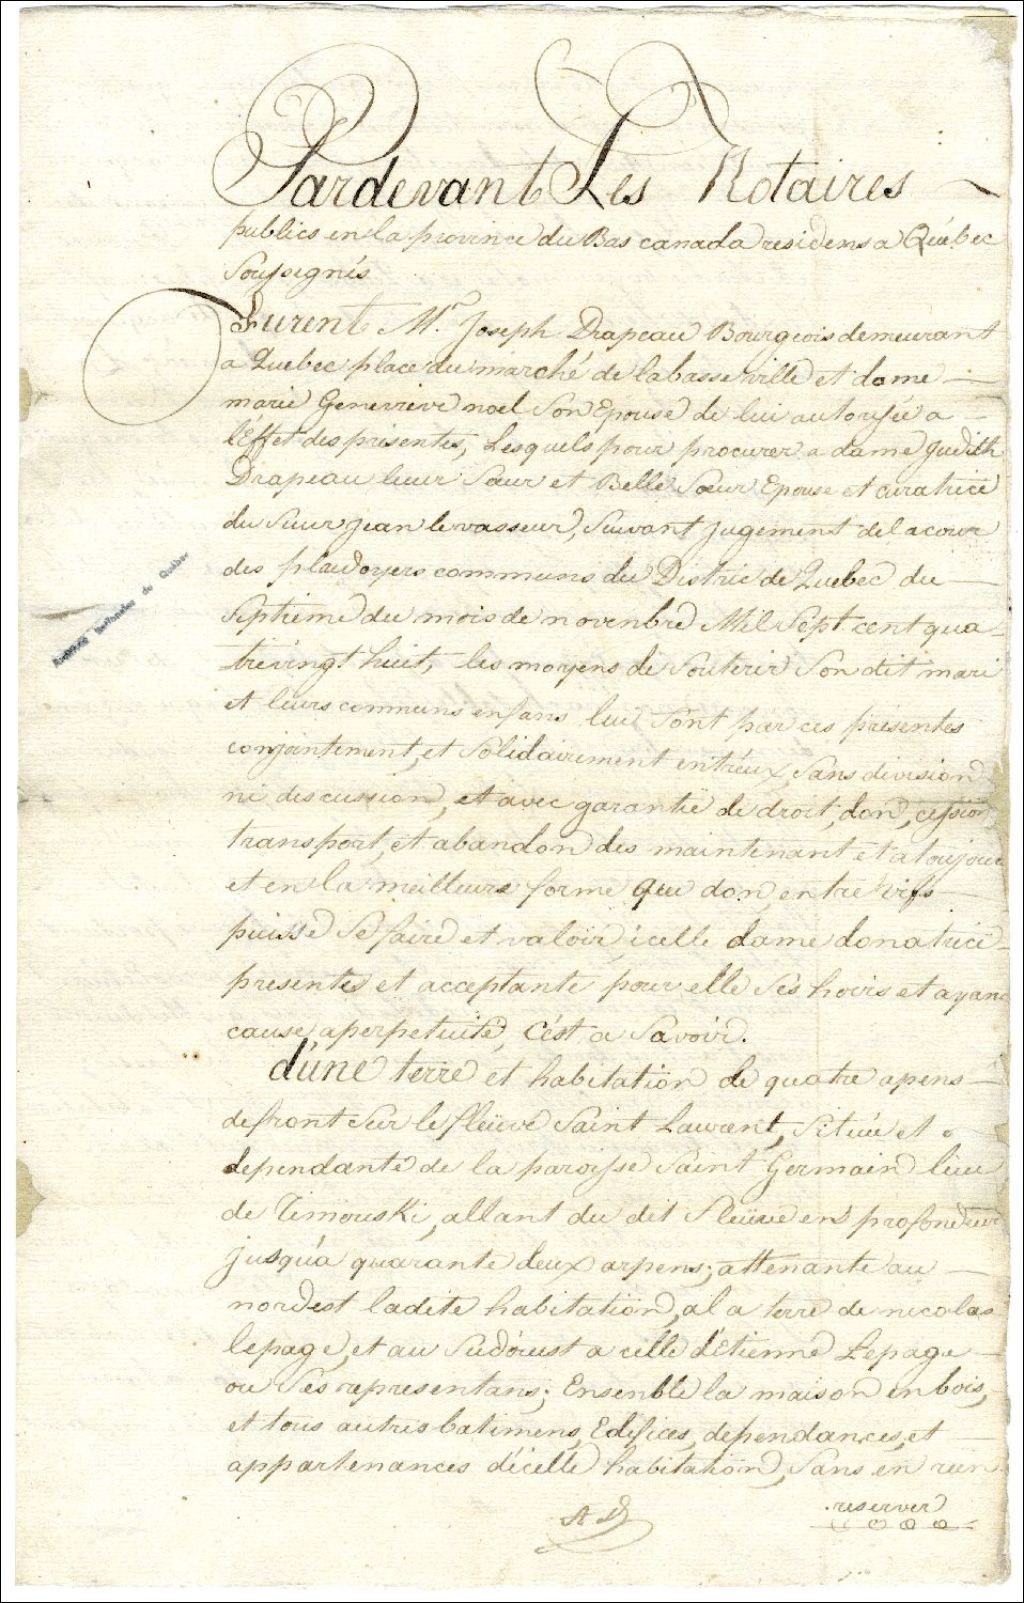 Pardevant Les Notaires
publics en la province du Bas canada residens a Québec
Soussignés
Furent Mr. Joseph Drapeau Bourgeois demeurant
a Quebec place du marché de la basse ville et dame
marie Genevieve noel Son Epouse de lui autorisée a
l'Effet des présentes, Lesquels pour procurer a dame Judith
Drapeau leur Sœur et Belle Sœur Epouse et curatrice
du Sieur jean levasseur, Suivant jugement de la cour
des plaidoyers communs du District de Quebec du
Septieme du mois de novenbre Mil Sept cent qua
trevingt huit, les moyens de Soutenir Son dit mari
et leurs communs enfans lui font par ces présentes
conjointement, et Solidairement entr'eux, Sans division
ni discussion, et avec garantie de droit, don, cession
transport, et abandon des maintenant et a toujours
et en la meilleure forme que don entre vifs
puisse Se faire et valoir, icelle dame donatrice
presente et acceptante pour elle Ses hoirs et ayans
cause, a perpetuité, C'est a Savoir.
d'une terre et habitation de quatre apens
de front Sur le fleüve Saint Laurent, Situee et
dependante de la paroisse Saint Germain lieu
de Rimouski, allant du dit fleüve en profondeur
jusqu'a quarante deux arpens; attenante au
nordest ladite habitation, a la terre de nicolas
lepage, et au Sudouest a celle d'Etienne Lepage
ou Ses representans; Ensemble la maison en bois,
et tous autres batimens, Edifices, dependances, et
appartenances d'icelle habitation, Sans en rien
reserver